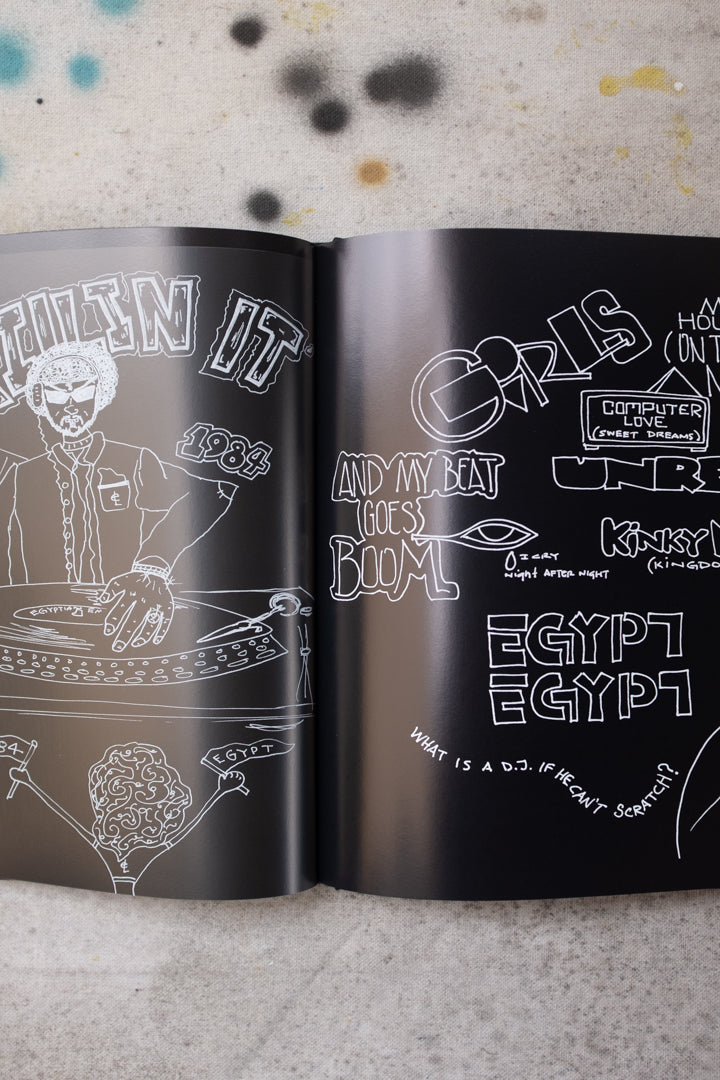 IT
1984
EGYPTIAN
84
EGYPT
GIRLS
HO
(ON T
COMPUTER
LOVE
(SWEET DREAMS)
AND MY BEAT
(GOES)
BOOM
UNRE
I CRY
NigHT AFTER NIGHT
KiNKY
(KiNGDO
EGYPT
EGYPT
WHAT IS A D.J. IF HE CAN'T SCRATCH?